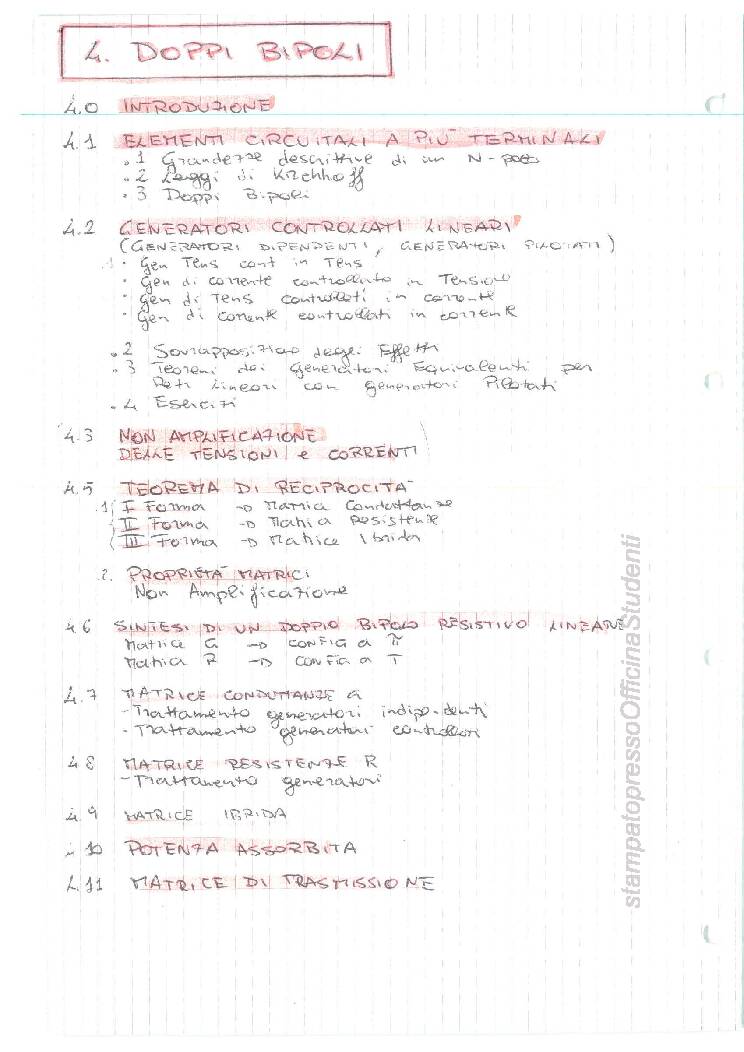 4. DOPPI BIPOLI
4.0 INTRODUZIONE
4.1 ELEMENTI CIRCUITALI A PIÙ TERMINALI
.1 Grandezze descrittive di un N-polo
.2 Leggi di Kirchhoff
.3 Doppi Bipoli
4.2 GENERATORI CONTROLLATI LINEARI
(GENERATORI DIPENDENTI, GENERATORI PILOTATI)
.1 · Gen Tens cont in Tens
· Gen di corrente controllato in Tensione
· gen di Tens controllati in corrente
· Gen di corrente controllati in corrente
.2 Sovrapposizione degli Effetti
.3 Teoremi dei Generatori Equivalenti per
Reti Lineari con generatori Pilotati
.4 Esercizi
4.3 NON AMPLIFICAZIONE
DELLE TENSIONI e CORRENTI
4.5 TEOREMA DI RECIPROCITÀ
.1 I Forma → Matrice Conduttanze
II Forma → Matrice Resistenze
III Forma → Matrice Ibrida
2. PROPRIETÀ MATRICI
Non Amplificazione
4.6 SINTESI DI UN DOPPIO BIPOLO RESISTIVO LINEARE
Matrice G → CONFIG a π
Matrice R → CONFIG a T
4.7 MATRICE CONDUTTANZE G
- Trattamento generatori indipendenti
- Trattamento generatori controllati
4.8 MATRICE RESISTENZE R
- Trattamento generatori
4.9 MATRICE IBRIDA
4.10 POTENZA ASSORBITA
4.11 MATRICE DI TRASMISSIONE
stampatopressoOfficinaStudenti